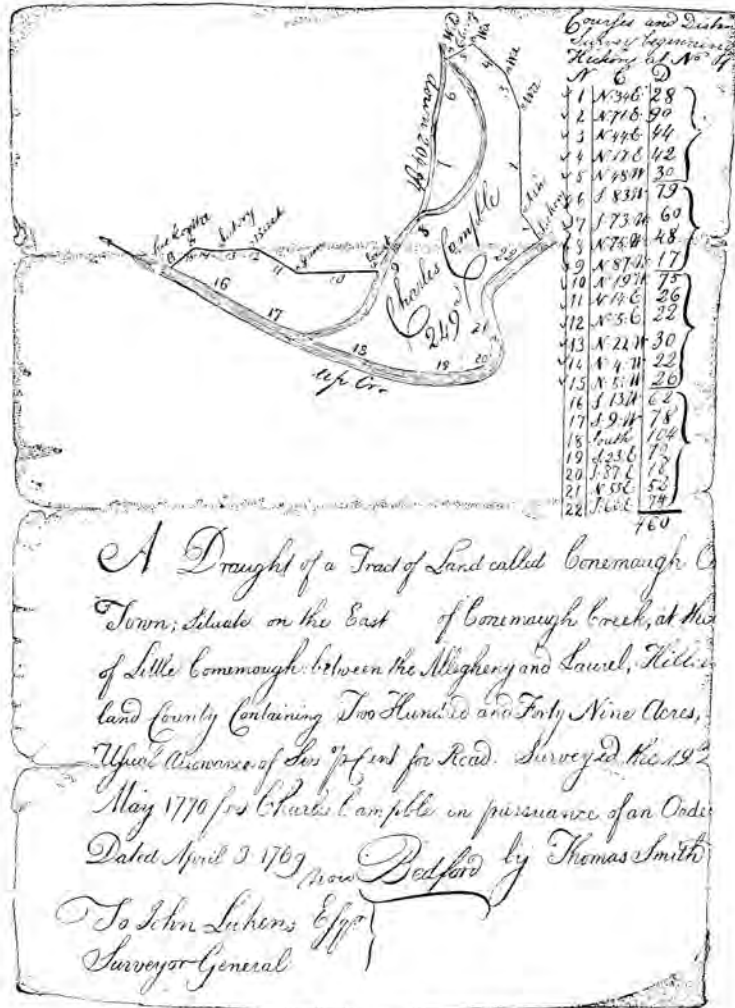 Courses and Distan
Survey beginning
Hickory at No
N C D
1 N 34 E 28
2 N 71 E 90
3 N 44 E 44
4 N 17 E 42
5 N 48 W 30
6 S 83 W 79
7 S 73 W 60
8 N 75 W 48
9 N 87 W 17
10 N 19 W 75
11 N 14 E 26
12 N 5 E 22
13 N 22 W 30
14 N 4 W 22
15 N 5 W 26
16 S 13 W 62
17 S 9 W 78
18 South 104
19 S 23 E 70
20 S 87 E 18
21 N 55 E 52
22 S 60 E 74
460
Charles Campble
249
16
17
18
19
20
21
22
up Cr.
A Draught of a Tract of Land called Conemaugh O
Town; Situate on the East of Conemaugh Creek, at the
of Little Conemaugh: between the Allegheny and Laurel, Hill
land County Containing Two Hundred and Forty Nine Acres,
Usual Allowance of Six p Cent for Road. Surveyed the 19
May 1770 for Charles Campble in pursuance of an Orde
Dated April 3 1769 by Thomas Smith
now Bedford
To John Lukens Esqr
Surveyor General